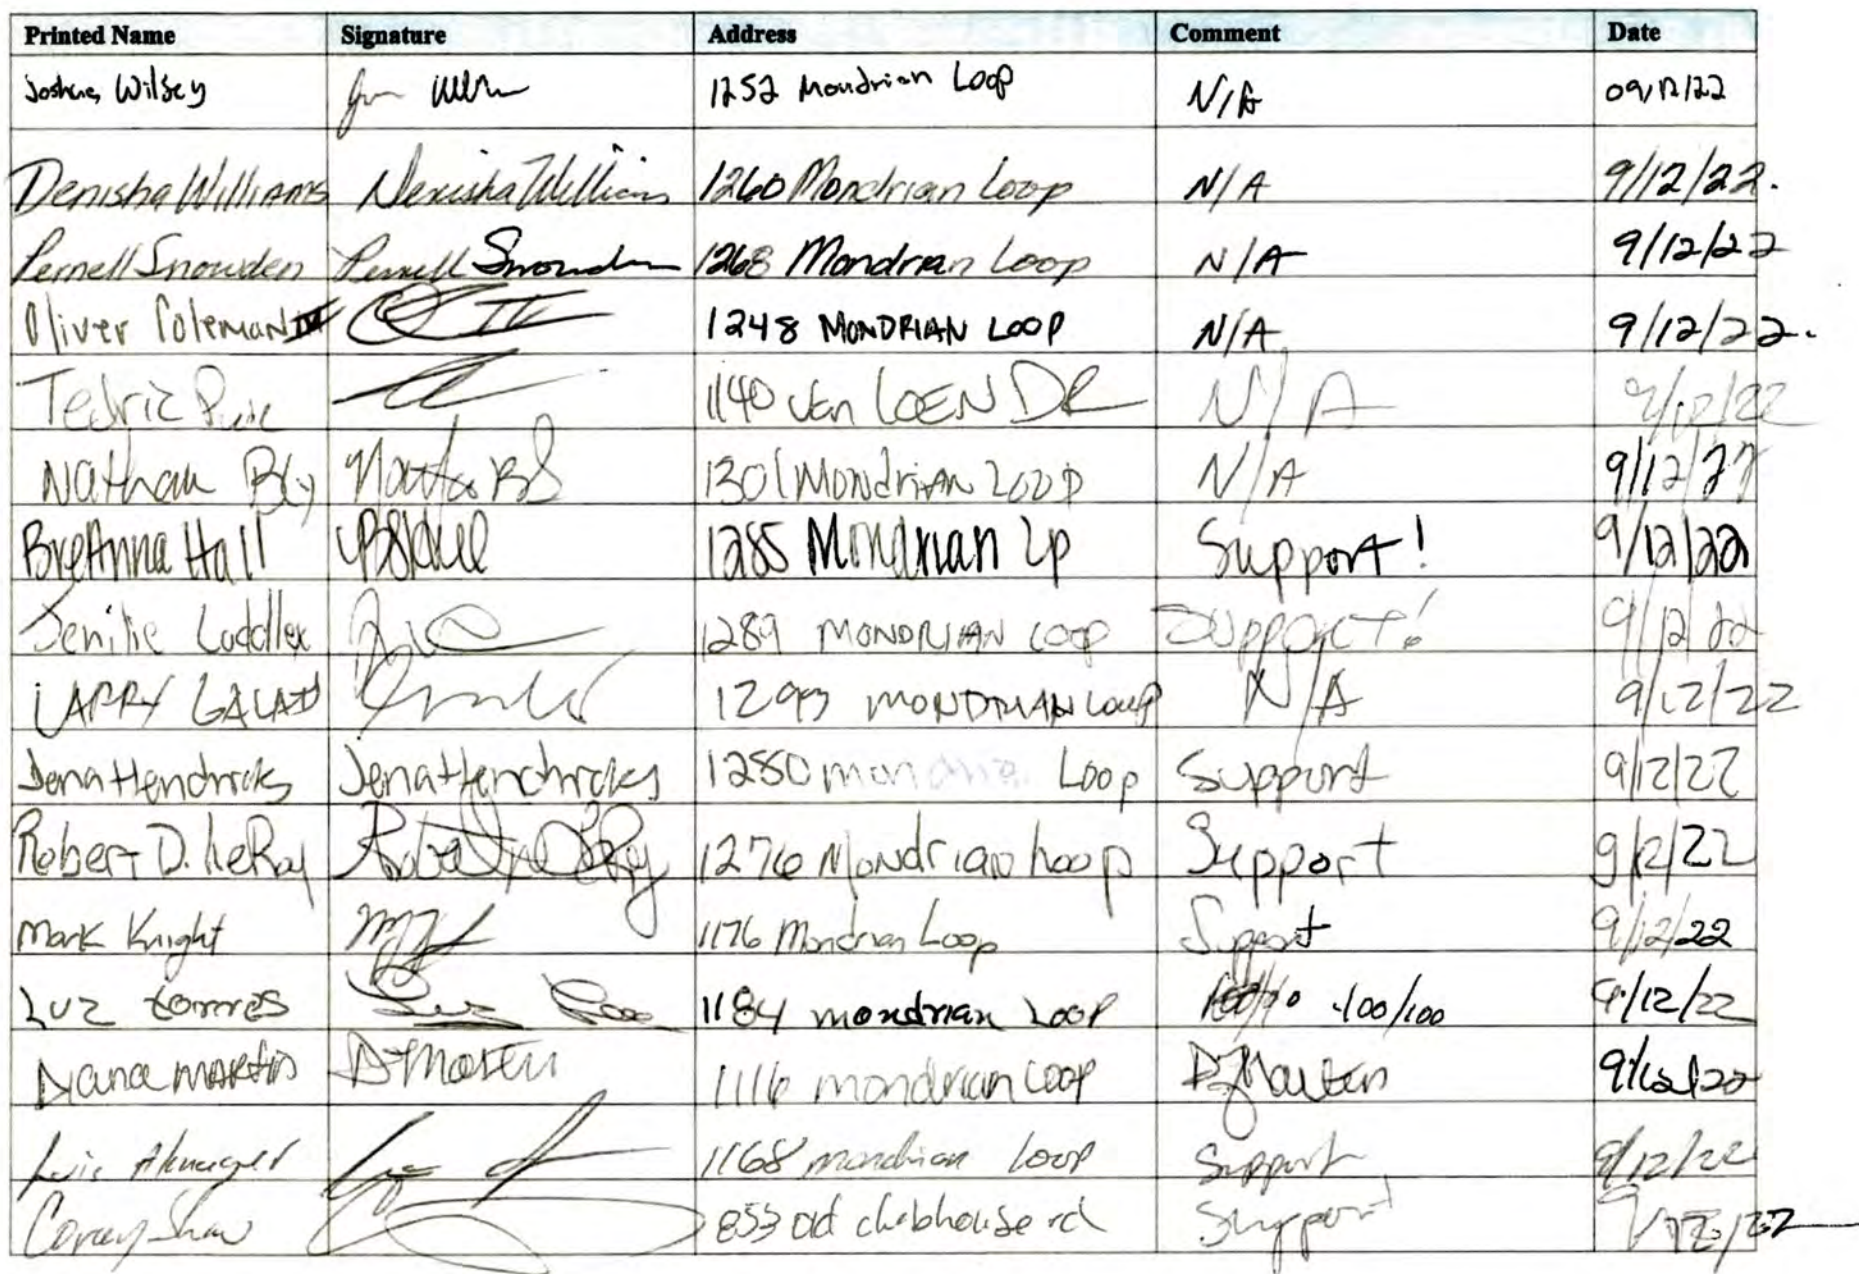 Printed Name Signature Address Comment Date
Joshua Wilsey 1252 Mondrian Loop N/A 09/12/22
Denisha Williams Denisha Williams 1260 Mondrian Loop N/A 9/12/22.
Pernell Snowden Pernell Snowden 1268 Mondrian Loop N/A 9/12/22
Oliver Coleman IV IV 1248 MONDRIAN LOOP N/A 9/12/22.
Tedric 1140 Van LOEN DR N/A 9/12/22
Nathan Bly 1301 Mondrian Loop N/A 9/12/22
BreAnna Hall 1285 Mondrian Lp Support! 9/12/22
1289 MONDRIAN LOOP Support! 9/12/22
LARRY 1293 MONDRIAN Loop N/A 9/12/22
Jena Hendricks Jena Hendricks 1280 mondria Loop Support 9/12/22
Robert D. LeRoy Robert D LeRoy 1276 Mondrian Loop Support 9/12/22
Mark Knight 1176 Mondrian Loop Support 9/12/22
Luz torres Luz 1184 mondrian Loop 100/100 9/12/22
Diana MARtin D Martin 1116 mondrian Loop D Marten 9/12/22
Luis 1168 mondrian loop Support 9/12/22
Corey Shaw 853 old clubhouse rd Support 9/12/22